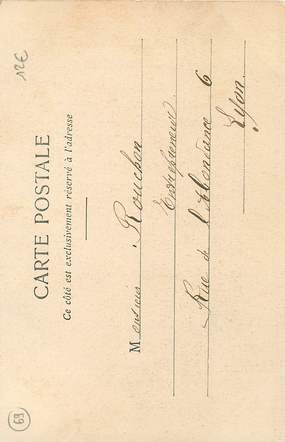 12€
CARTE POSTALE
Ce côté est exclusivement réservé à l'adresse
Monsieur Rouchon
Entrepreneur
Rue de l'Abondance 6
Lyon
69